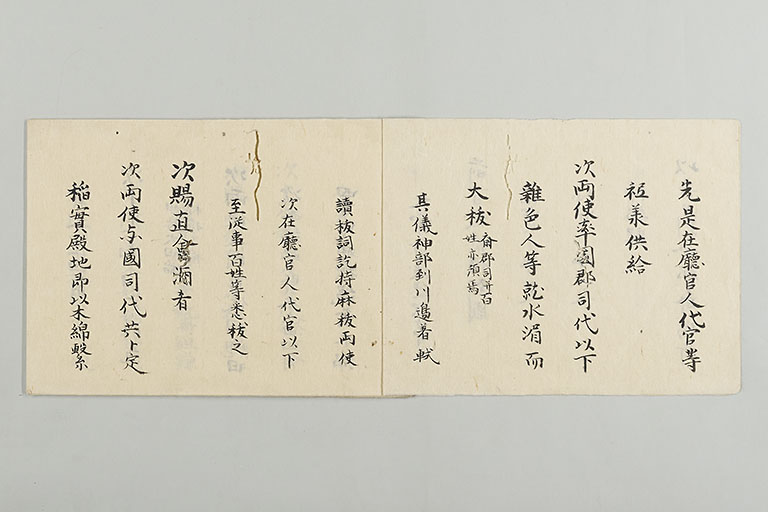 先是在廳官人代官等
祗羕供給
次両使率國郡司代以下
雜色人等就水湄而
大祓斎郡司并百
姓亦預焉
其儀神部到川邉着軾
讀祓詞訖持麻祓両使
次在廳官人代官以下
至従事百姓等悉祓之
次賜直會酒肴
次両使与國司代共卜定
稲實殿地即以木綿繫